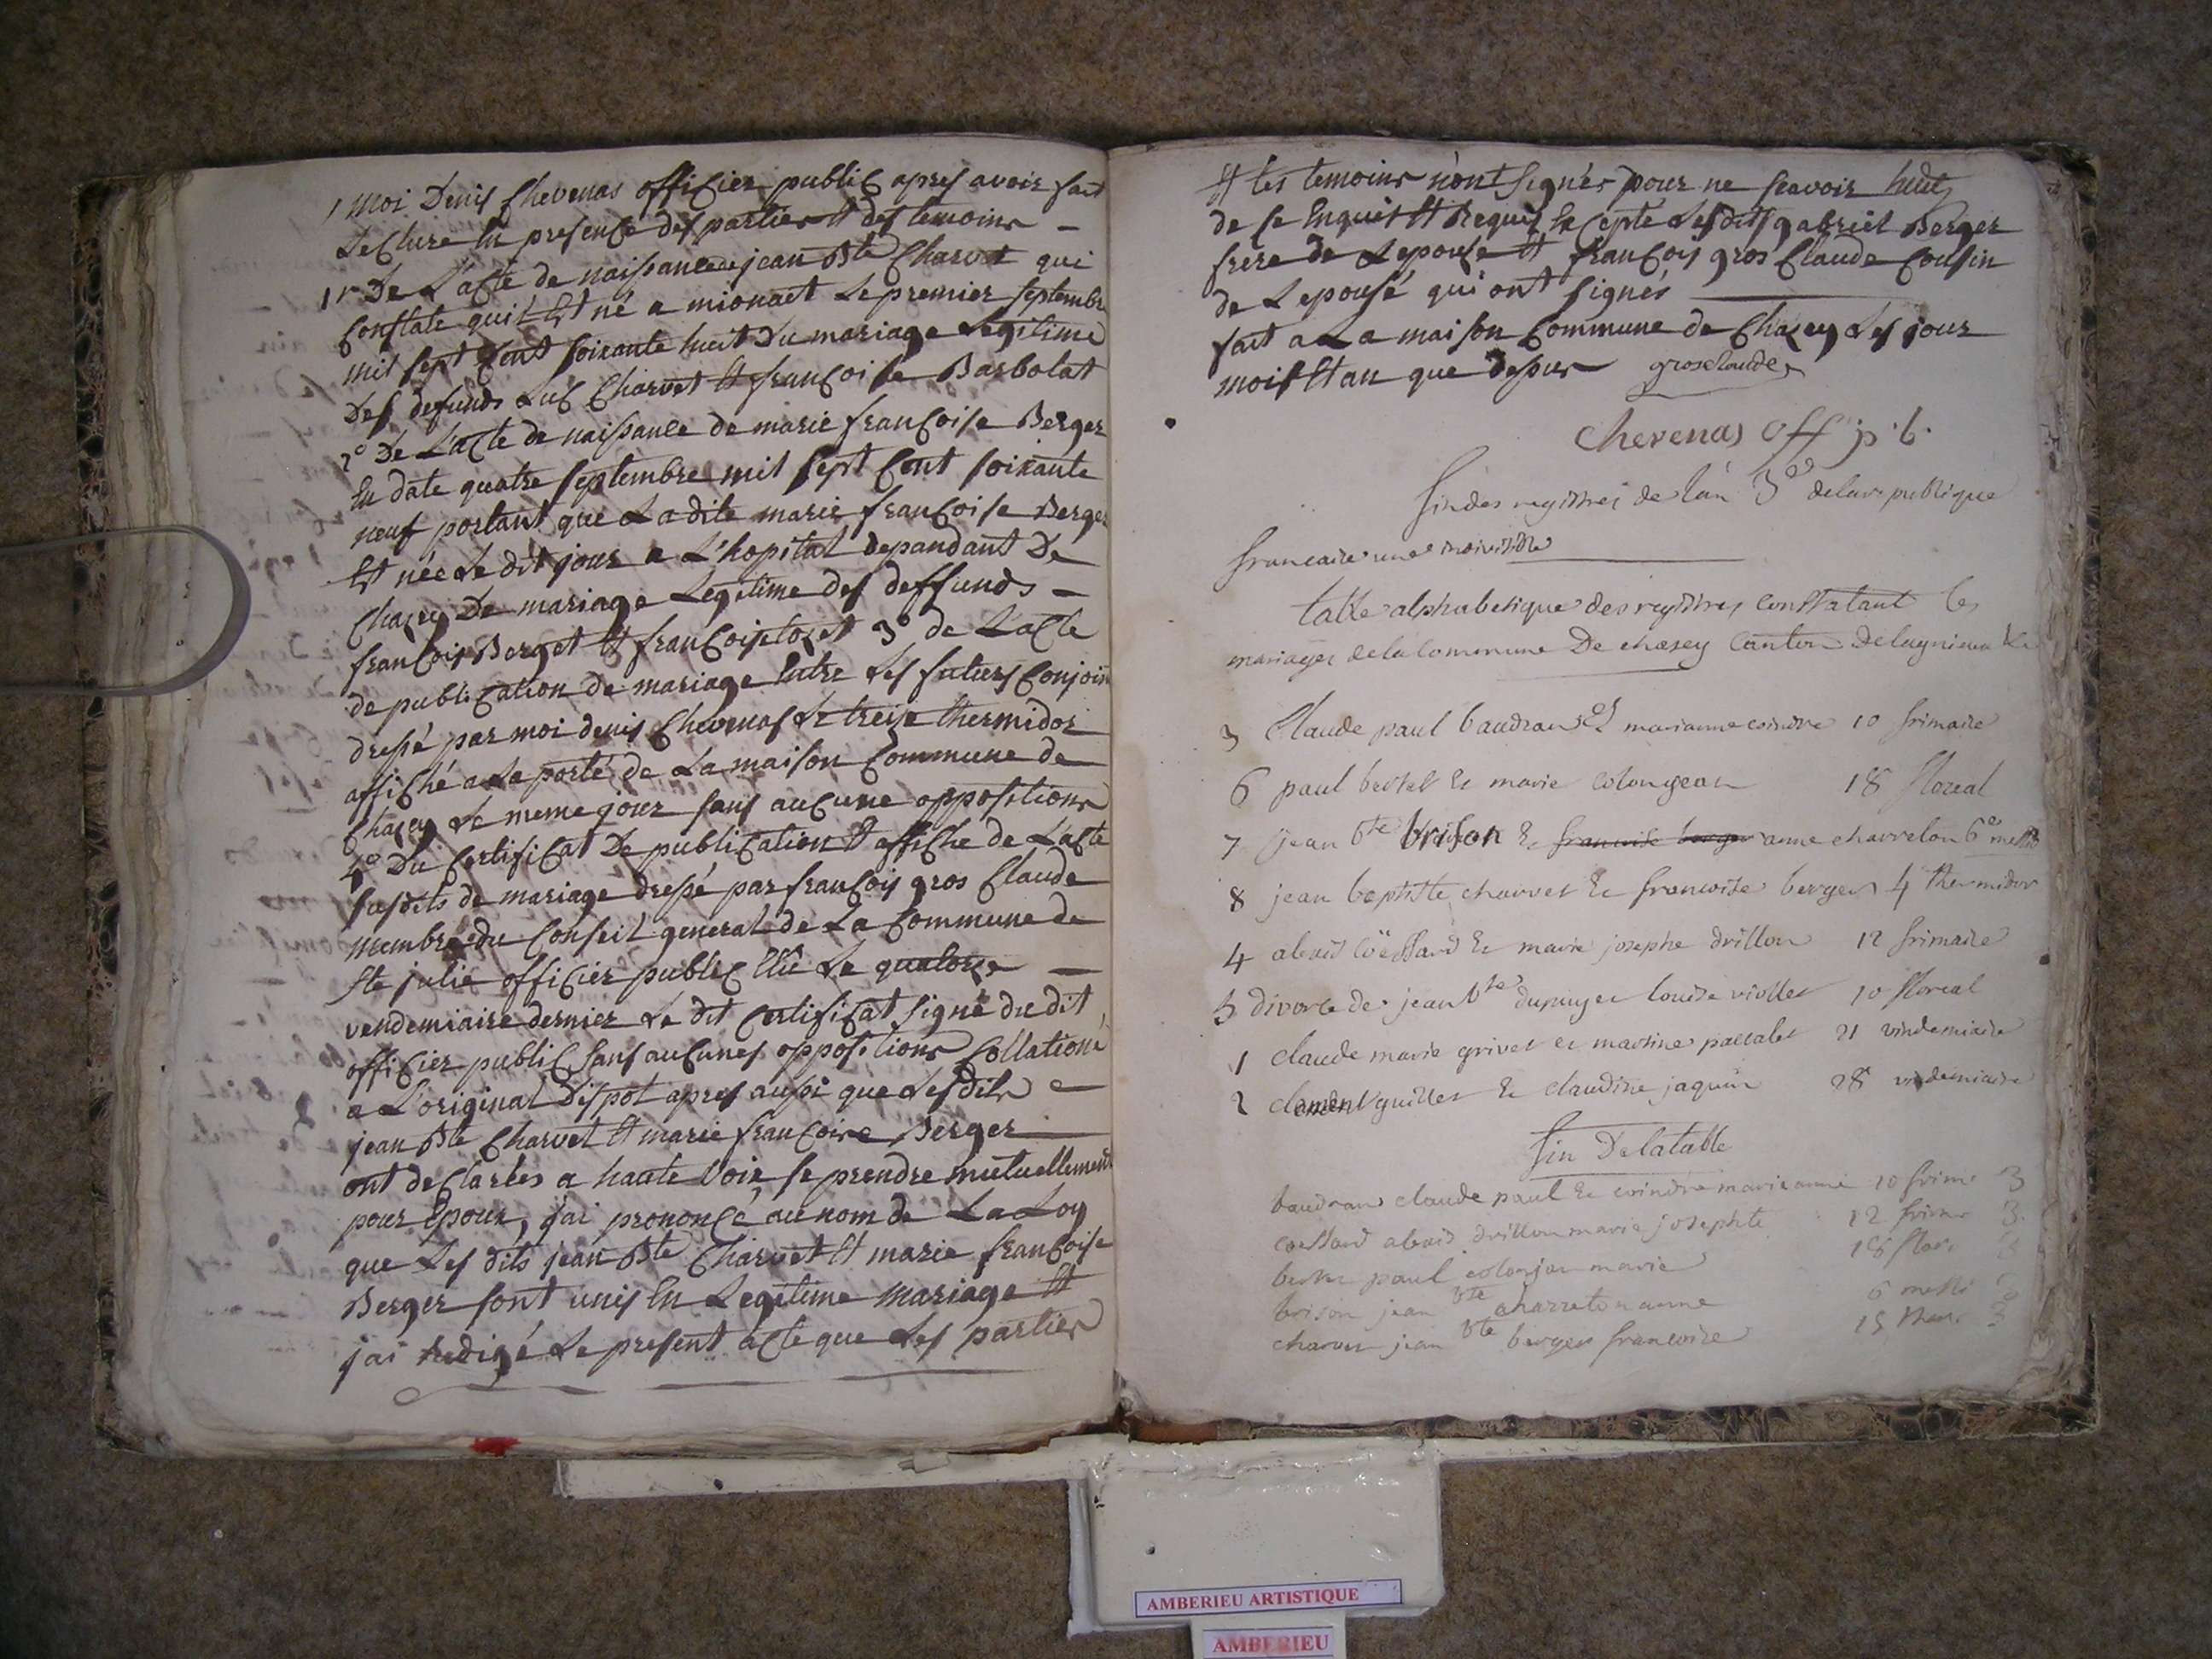 moi Denis Chevenas officier public apres avoir fait
Lecture En presence des parties Et des temoins
1r De L'acte de naissance de jean Bte Charvet qui
Constate quil Est né a mionaet Le premier septembre
mil sept Cent soixante huit Du mariage Legitime
Des defunds Luc Charvet Et francoise Barbolat
2o De L'acte de naissance de marie francoise Berger
En date quatre septembre mil sept Cent soixante
neuf portant que La dite marie francoise Berger
Est née Le dit jour a L'hopital dependant De
Chazey De mariage Legitime des deffunds
francois Berget Et francoise 3o de L'acte
de publication de mariage Entre Les futurs Conjoin
dressé par moi denis Chevenas Le treize thermidor
affiché a La porte de La maison Commune de
Chazey Le meme jour sans aucune oppositions
4o Du Certificat De publication Et affiche de L'acte
susdits de mariage dressé par francois gros Claude
membre du Conseil general de La Commune de
Ste julie officier public Elu Le quatorze
vendemiaire dernier Le dit Certificat signé du dit
officier public sans aucunes oppositions Collationé
a L'original apres aussi que Lesdits
jean Bte Charvet Et marie francoise Berger
ont declarés a haute voix se prendre mutuellement
pour Epoux, j'ai prononcé au nom de La Loy
que Les dits jean Bte Charvet Et marie francoise
Berger sont unis En Legitime mariage Et
j'ai redigé Le present acte que Les parties
Et les temoins n'ont signés pour ne scavoir
de ce Enquis Et Requis Excepte Lesdits gabriel Berger
frere de Lepouse Et francois gros Claude Cousin
de Lepousé qui ont signés
fait a La maison Commune de Chazey Les jour
mois Et an que desur grosclaude
Chevenas off p.b.
fin des registres de l'an 3e de la republique
francaise une indivisible
table alphabetique des registres constatant les
mariages de la Commune De chasey Canton De lagnieu
3 Claude paul baudrand Et marianne coindre 10 frimaire
6 paul bertet & marie colongear 18 floreal
7 jean bte brison & francoise berger anne charreton 6e messid
8 jean baptiste charvet & francoise berger 4 thermidor
4 alexis Coëssard & marie josephe drillon 12 frimaire
5 divorce de jean bte dupuy et louise viollet 10 floreal
1 claude marie grivet et martine pascalet 21 vindemiaire
2 clement guillet & claudine jaquin 28 vindemiaire
fin De la table
baudrand claude paul & coindre marie anne 10 frim 3
coessard alexis drillon marie josephte 12 frimr 3
bertet paul colonjar marie 18 flor 3
brison jean bte charreton anne 6 messi 3
charvet jean bte berger francoise 15 ther. 3
AMBERIEU ARTISTIQUE
AMBERIEU